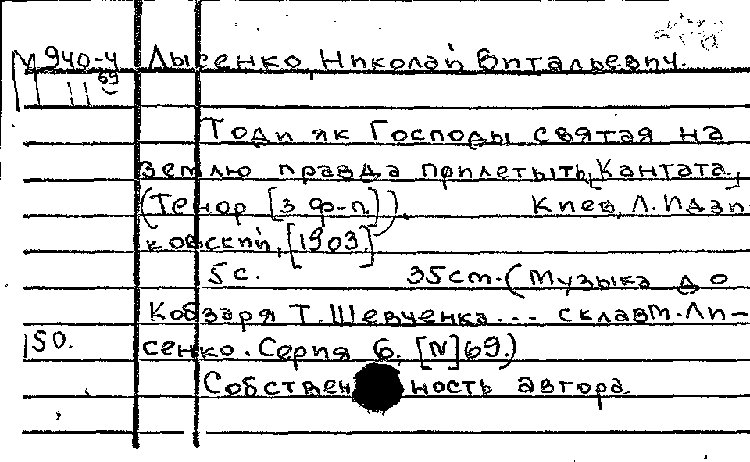 М 940-4 Лысенко, Николай Витальевич.
69
Тоди як Господы святая на
землю правда прилетыть, [Кантата,]
(Тенор [з ф-п]). Киев, Л. Идзи
ковский, [1903]
5 с. 35 cm. (Музыка до
Кобзаря Т. Шевченка... склав М. Ли-
150. сенко. Серия 6. [N] 69.)
Собственность автора.